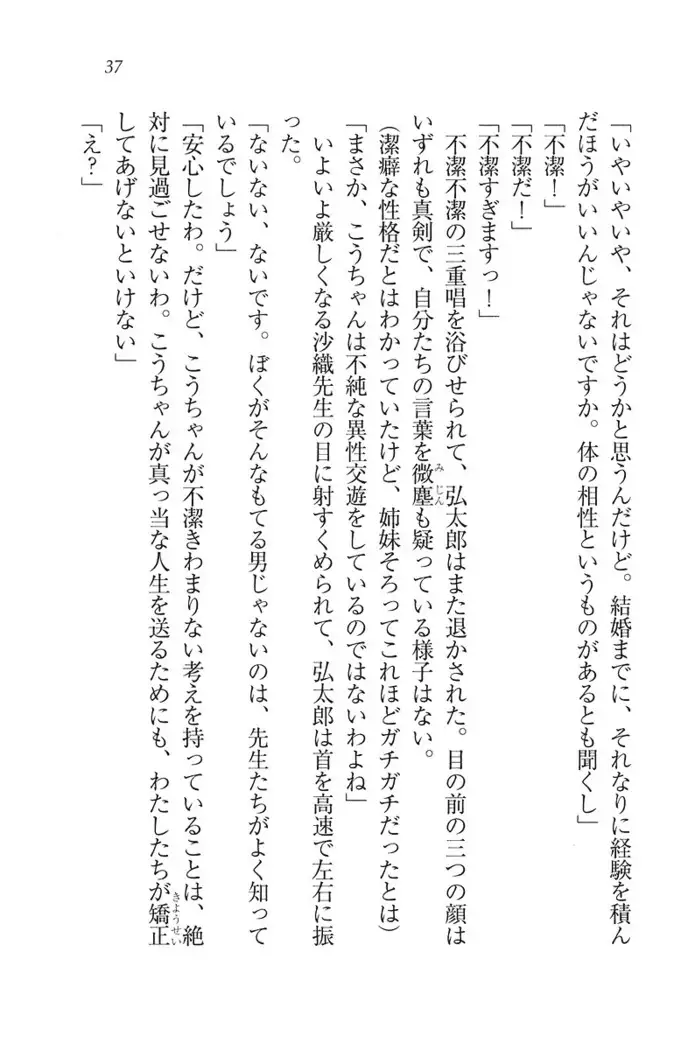 37
「いやいやいや、それはどうかと思うんだけど。結婚までに、それなりに経験を積ん
だほうがいいんじゃないですか。体の相性というものがあるとも聞くし」
「不潔！」
「不潔だ！」
「不潔すぎますっ！」
　不潔不潔の三重唱を浴びせられて、弘太郎はまた退かされた。目の前の三つの顔は
いずれも真剣で、自分たちの言葉を微塵も疑っている様子はない。
みじん
（潔癖な性格だとはわかっていたけど、姉妹そろってこれほどガチガチだったとは）
「まさか、こうちゃんは不純な異性交遊をしているのではないわよね」
　いよいよ厳しくなる沙織先生の目に射すくめられて、弘太郎は首を高速で左右に振
った。
「ないない、ないです。ぼくがそんなもてる男じゃないのは、先生たちがよく知って
いるでしょう」
「安心したわ。だけど、こうちゃんが不潔きわまりない考えを持っていることは、絶
対に見過ごせないわ。こうちゃんが真っ当な人生を送るためにも、わたしたちが矯正
きようせい
してあげないといけない」
「え？」